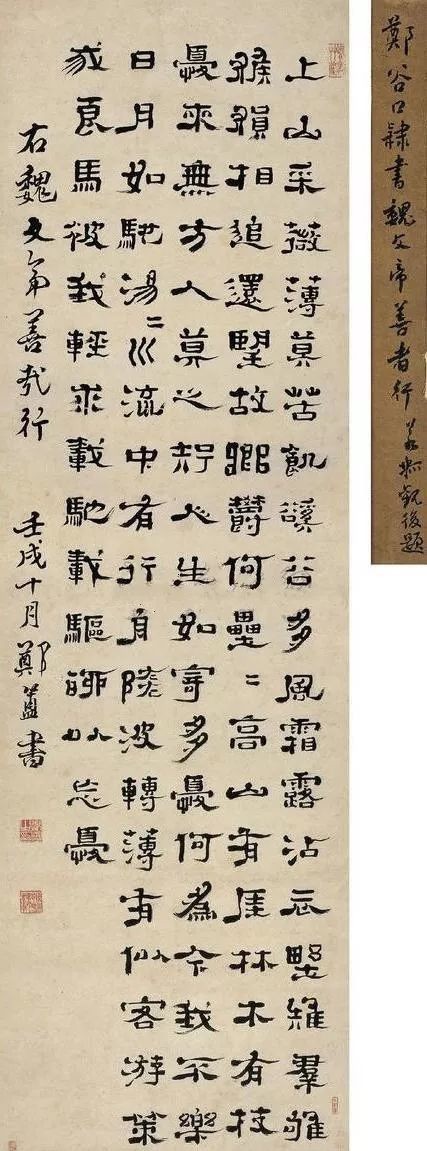 鄭谷口隸書魏文帝善者行 觀後題
上山采薇薄莫苦飢谿谷多風霜露沾衣野雉羣雊
猴猨相追還望故鄉鬱何壘〻高山有厓林木有枝
憂來無方人莫之知人生如寄多憂何為今我不樂
日月如馳湯〻川流中有行舟隨波轉薄有似客游策
我良馬被我輕裘載馳載驅聊以忘憂
右魏文帝善哉行 壬戌十月鄭簠書